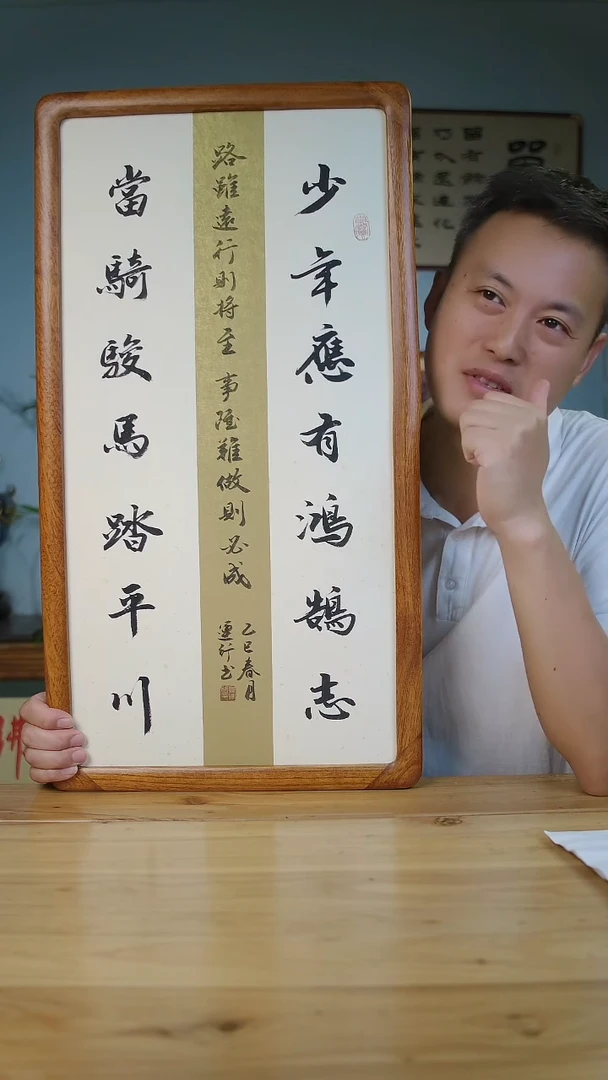 少年應有鴻鵠志
路雖遠行则将至 事雖難做则必成
乙巳春月
行书
當騎駿馬踏平川